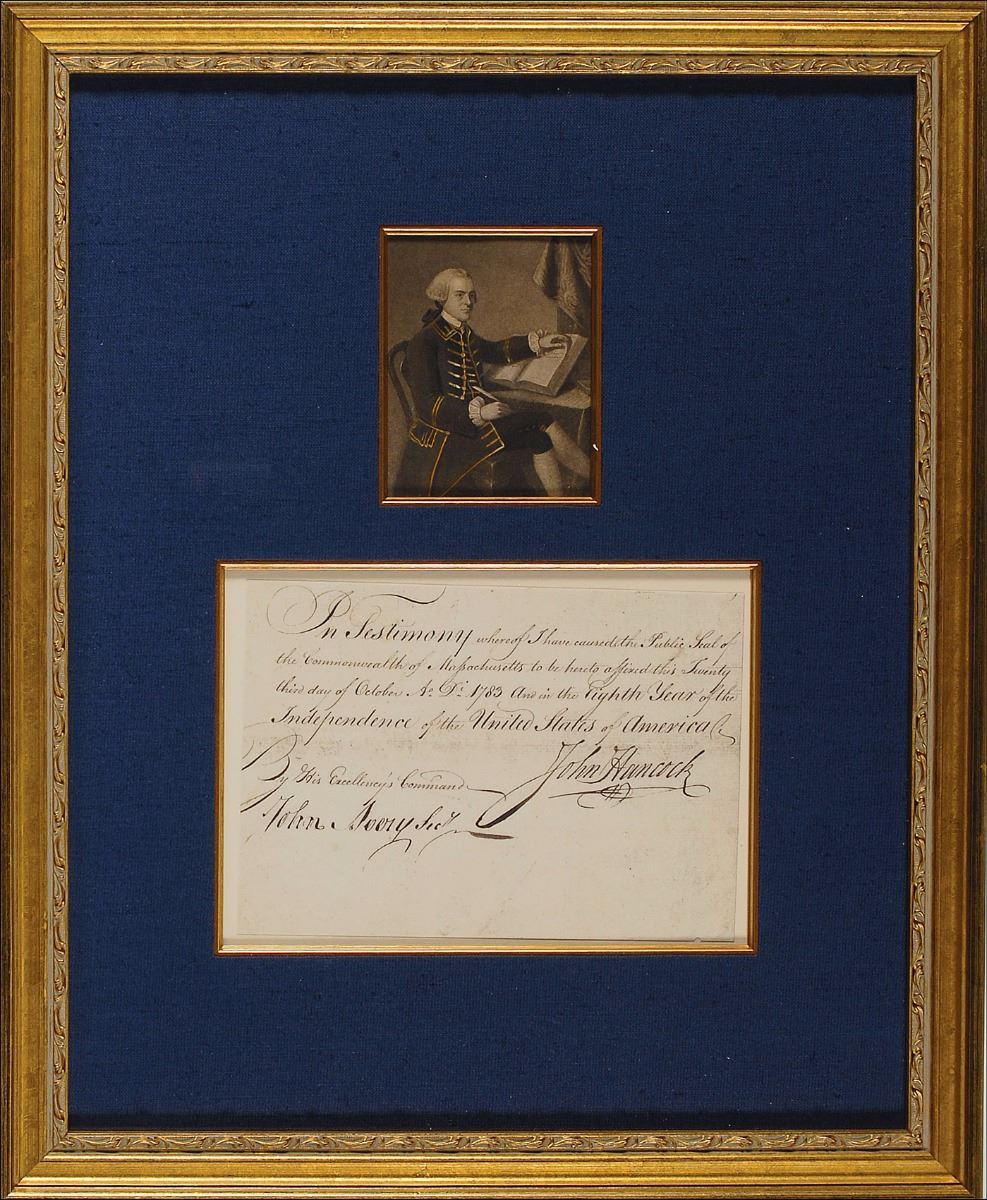 In Testimony whereof I have caused the Public Seal of
the Commonwealth of Massachusetts to be hereto affixed this Twenty
third day of October Ao. Di. 1783 And in the Eighth Year of the
Independence of the United States of America &c.
John Hancock
By His Excellency's Command
John Avery Secy